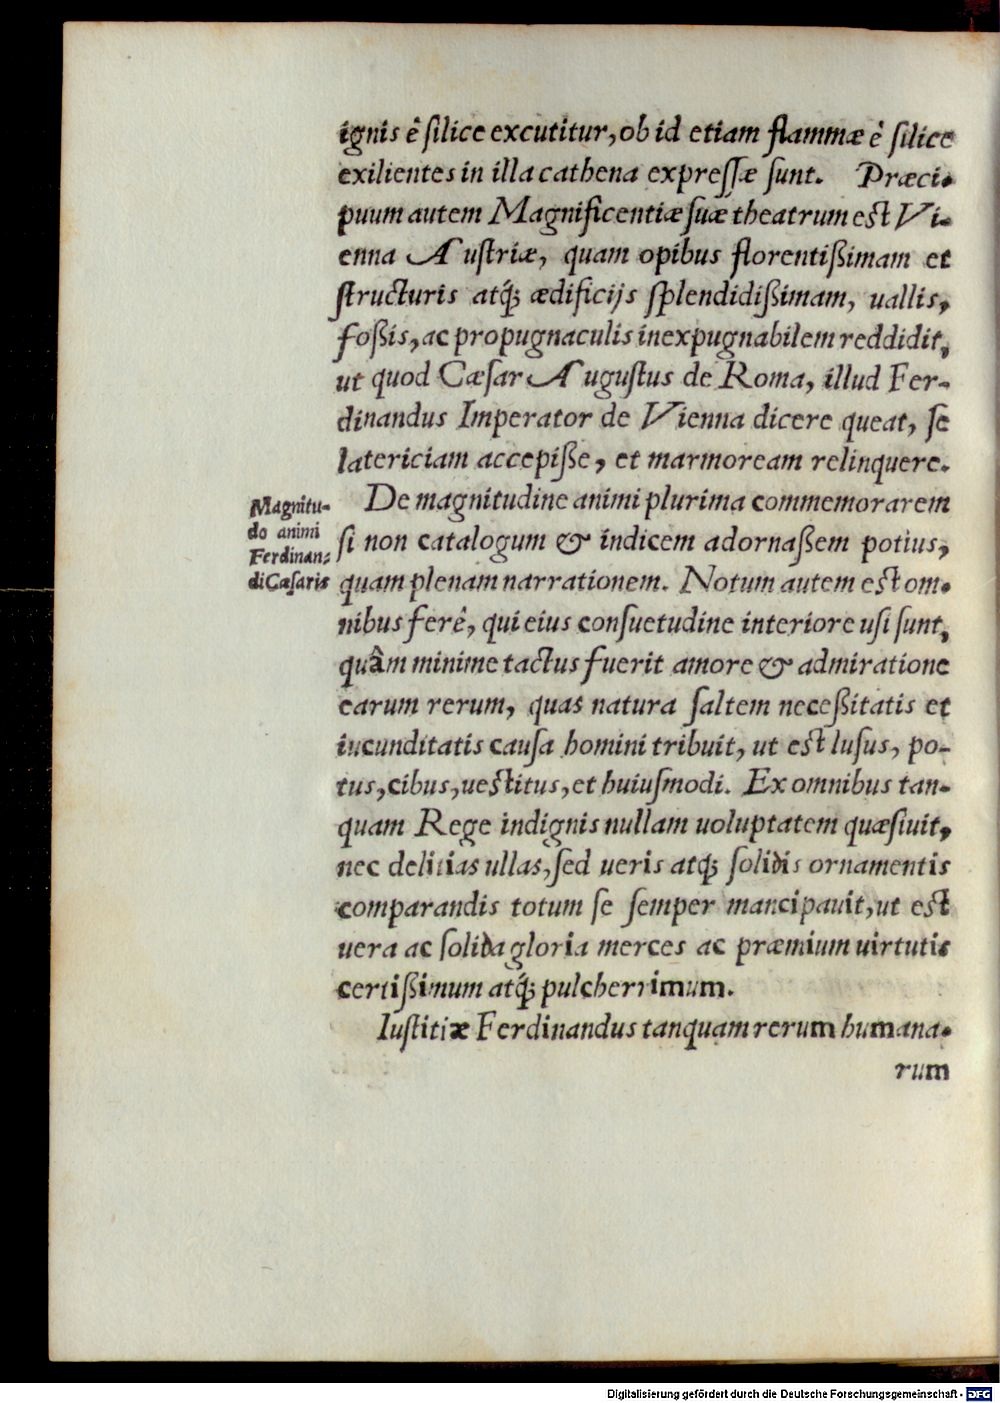 ignis ê ſilice excutitur, ob id etiam flammæ ê ſilice
exilientes in illa cathena expreſſæ ſunt. Præci-
puum autem Magnificentiæ ſuæ theatrum est Vi-
enna Auſtriæ, quam opibus florentißimam et
ſtructuris atq́; ædificijs ſplendidißimam, uallis,
foßis, ac propugnaculis inexpugnabilem reddidit,
ut quod Cæſar Auguſtus de Roma, illud Fer-
dinandus Imperator de Vienna dicere queat, ſe
latericiam accepiße, et marmoream relinquere.
Magnitu-
do animi
Ferdinan-
di Cæſaris
De magnitudine animi plurima commemorarem
ſi non catalogum & indicem adornaßem potius,
quam plenam narrationem. Notum autem est om-
nibus ferê, qui eius conſuetudine interiore uſi ſunt,
quâm minime tactus fuerit amore & admiratione
earum rerum, quas natura ſaltem neceßitatis et
iucunditatis cauſa homini tribuit, ut est luſus, po-
tus, cibus, uestitus, et huiuſmodi. Ex omnibus tan-
quam Rege indignis nullam uoluptatem quæſiuit,
nec delitias ullas, ſed ueris atq́; ſolidis ornamentis
comparandis totum ſe ſemper mancipauit, ut est
uera ac ſolida gloria merces ac præmium uirtutis
certißimum atq́; pulcherrimum.
Iuſtitiæ Ferdinandus tanquam rerum humana-
rum
Digitalisierung gefördert durch die Deutsche Forschungsgemeinschaft - DFG